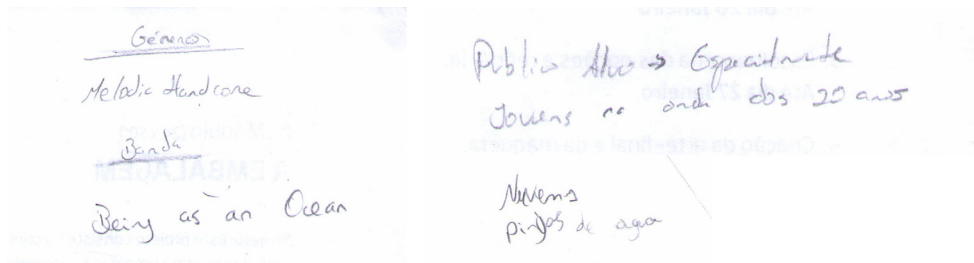 Géneros
Melodic Hardcore
Banda
Being as an Ocean
Publico Alvo → Especialmente
Jovens na onda dos 20 anos
Nuvens
pingos de agua